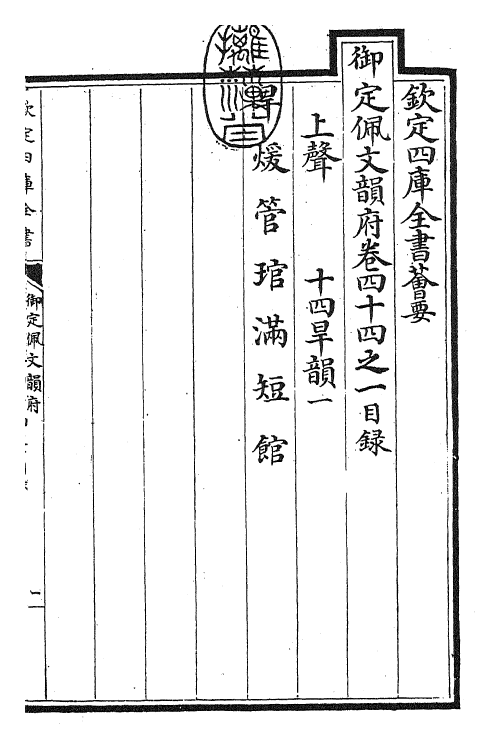 欽定四庫全書薈要
御定佩文韻府卷四十四之一目録
上聲 十四旱韻一
旱煖管琯滿短館
欽定四庫全書
御定佩文韻府
二